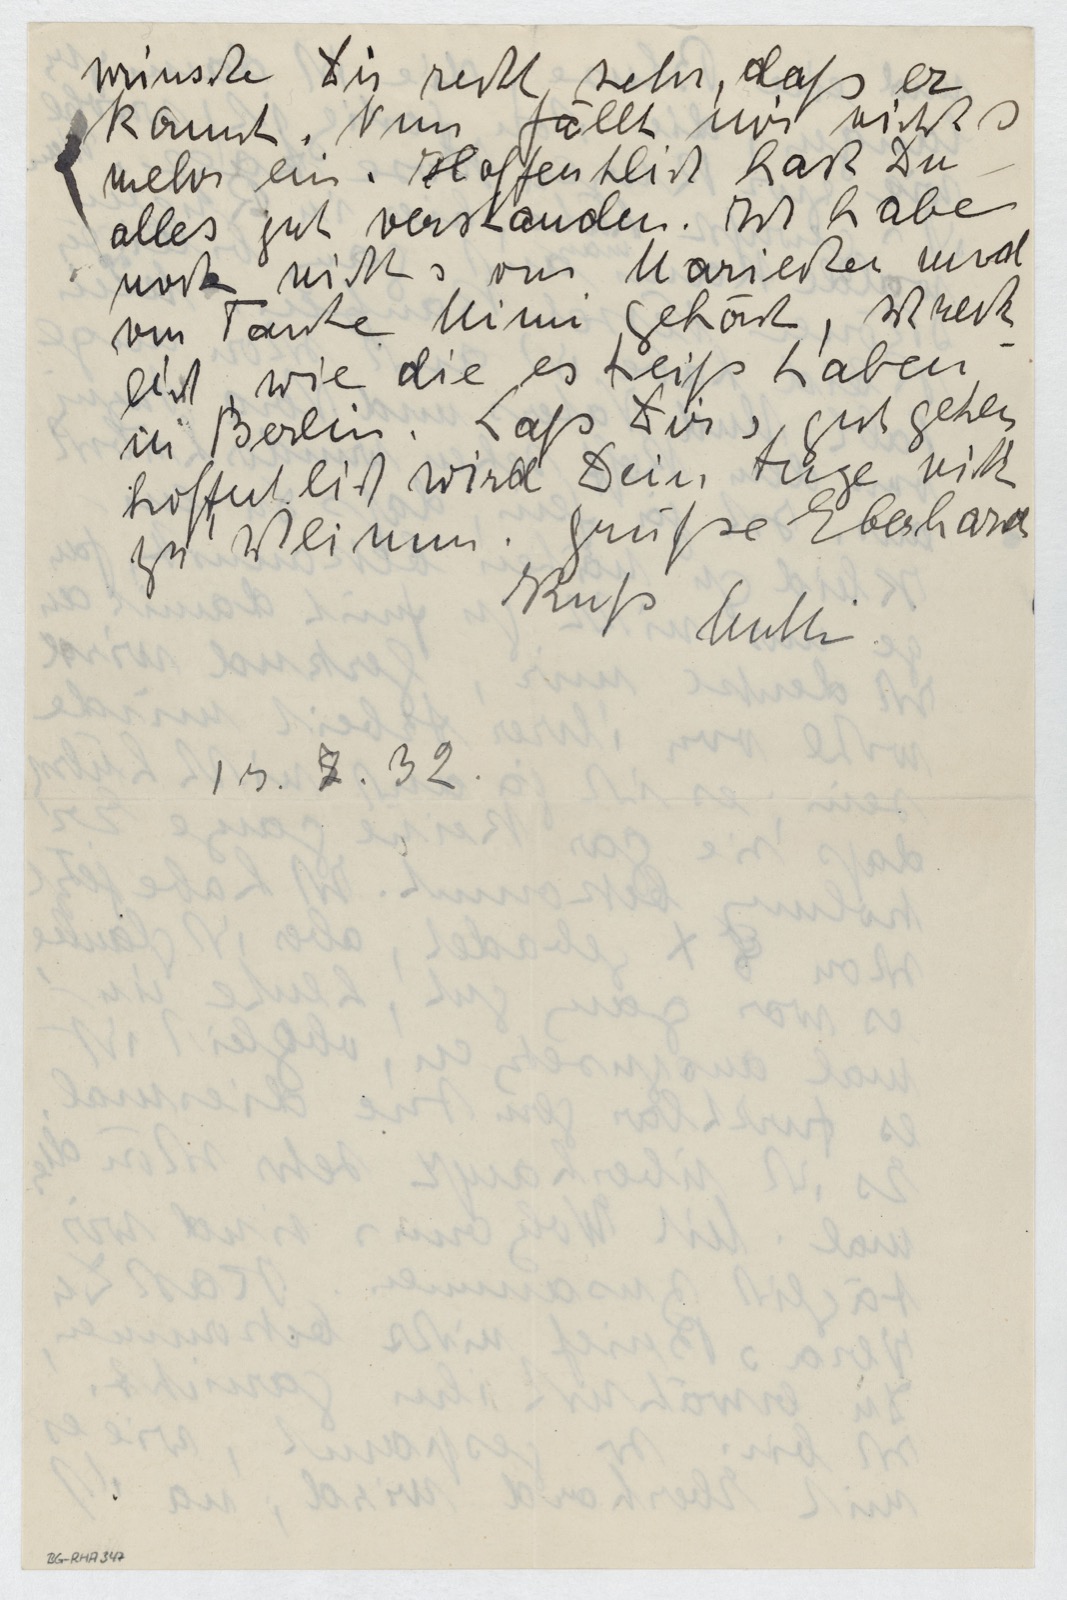 wünsche Dir recht sehr, daß er
kommt. Nun fällt mir nichts
mehr ein. Hoffentlich hast Du
alles gut verstanden. Ich habe
noch nichts von Mariechen und
von Tante Mimi gehört, schreck-
lich, wie die es heiß haben
in Berlin. Laß Dir's gut gehen
hoffentlich wird Dein Auge nicht
zu schlimm. Grüße Eberhard
Kuß Mutti
7. 32.
BG-RHA 347